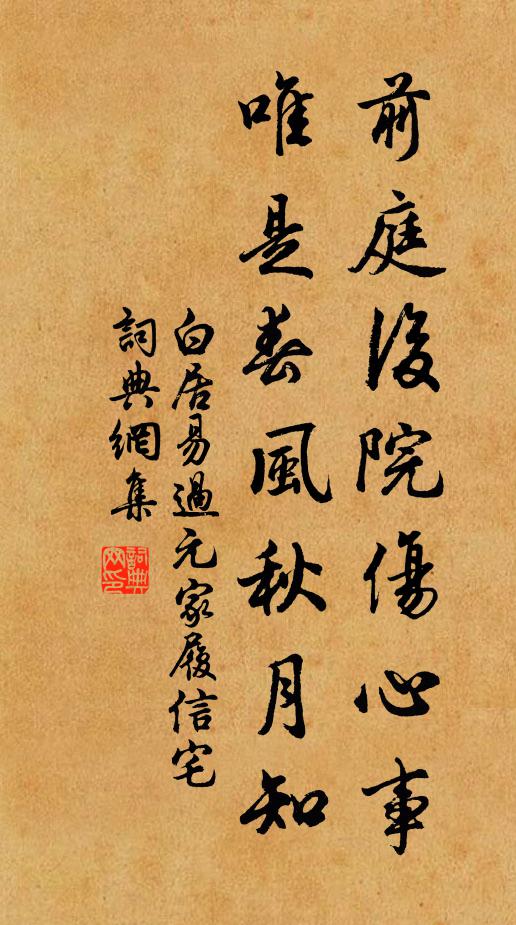 前庭後院傷心事
唯是春風秋月知
白居易過元家履信宅
詞典網集
詞典網印